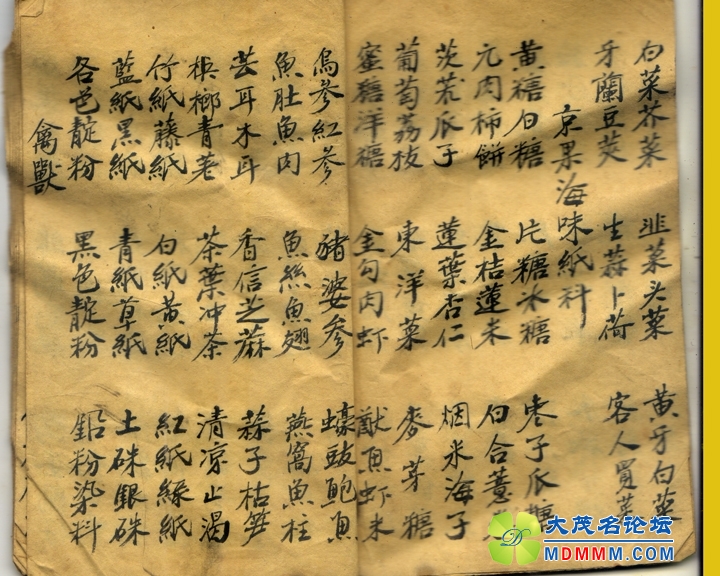 白菜芥菜 韭菜头菜 黄牙白菜
牙蘭豆荚 生蒜卜荷 客人買菜
京果海味紙料
黄糖白糖 片糖冰糖 枣子瓜糖
元肉柿餅 金桔蓮米 白合薏
茨菰瓜子 蓮葉杏仁 烟米海子
葡萄荔枝 東洋菜 麥芽糖
蜜糖洋糖 金勾肉虾 魷魚虾米
烏参紅参 豬婆参 蠔豉鮑魚
魚肚魚肉 魚絲魚翅 燕窩魚柱
芸耳木耳 香信芝蔴 蒜子枯笋
槟榔青荖 茶葉冲茶 清凉止渴
竹紙藤紙 白紙黄紙 紅紙綠紙
藍紙黑紙 青紙草紙 土硃銀硃
各色靛粉 黑色靛粉 鉛粉染料
禽獸
大茂名论坛
MDMMM.COM